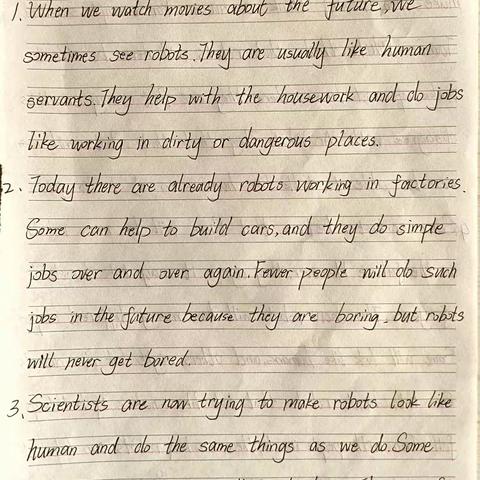 1. When we watch movies about the future, we
sometimes see robots. They are usually like human
servants. They help with the housework and do jobs
like working in dirty or dangerous places.
2. Today there are already robots working in factories.
Some can help to build cars, and they do simple
jobs over and over again. Fewer people will do such
jobs in the future because they are boring, but robots
will never get bored.
3. Scientists are now trying to make robots look like
human and do the same things as we do. Some